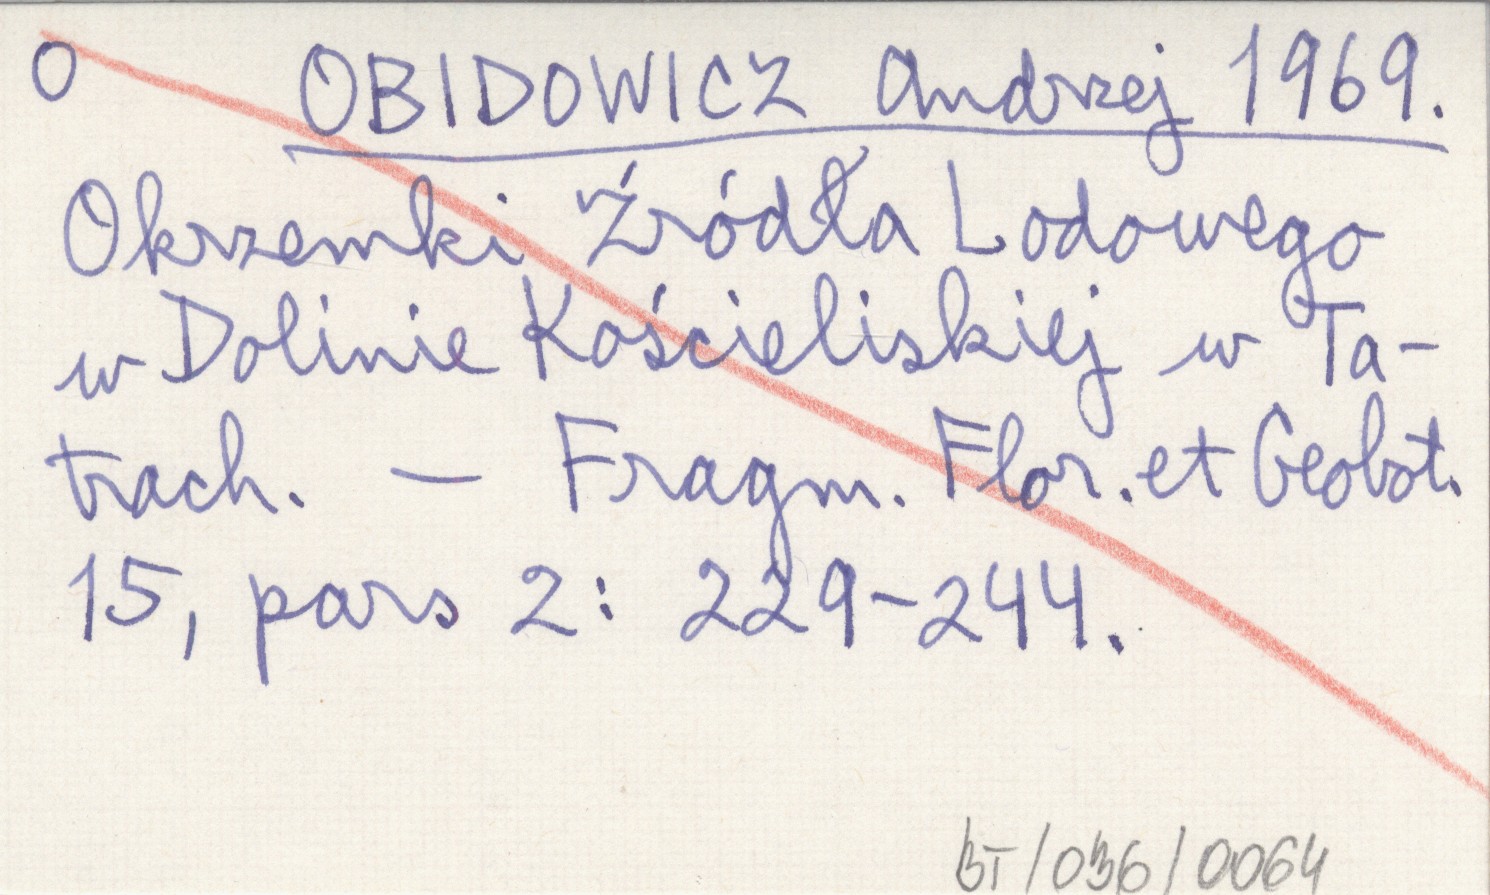 O OBIDOWICZ Andrzej 1969.
Okrzemki Źródła Lodowego
w Dolinie Kościeliskiej w Ta-
trach. — Fragm. Flor. et Geobot.
15, pars 2: 229-244.
BT/036/0064